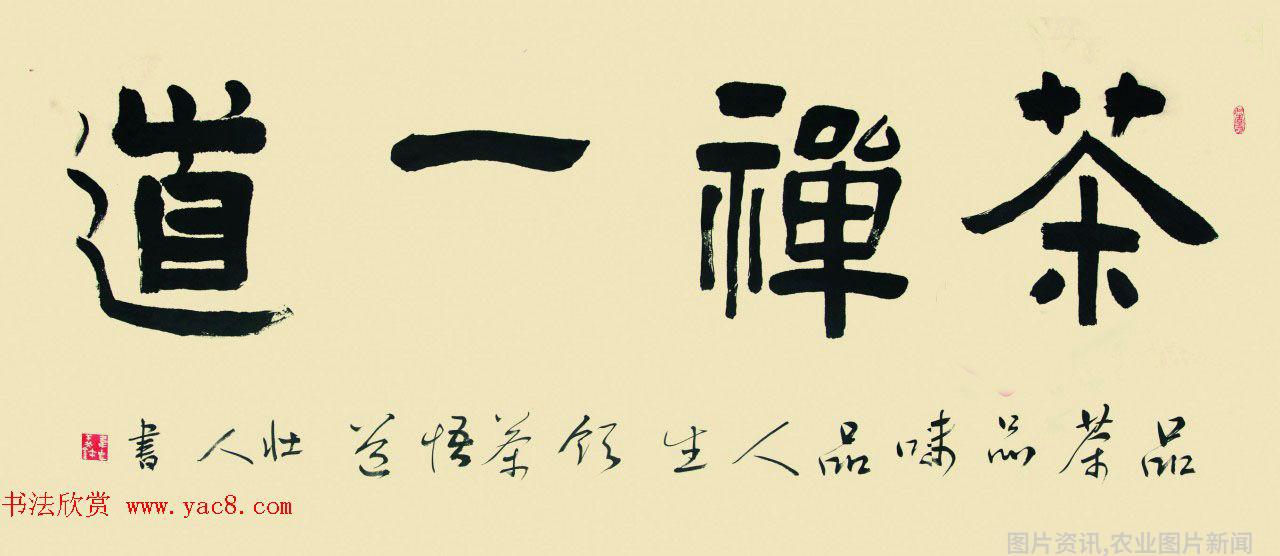 茶禪一道
品茶品味品人生饮茶悟道壮人書
书法欣赏 www.yac8.com
图片资讯,农业图片新闻